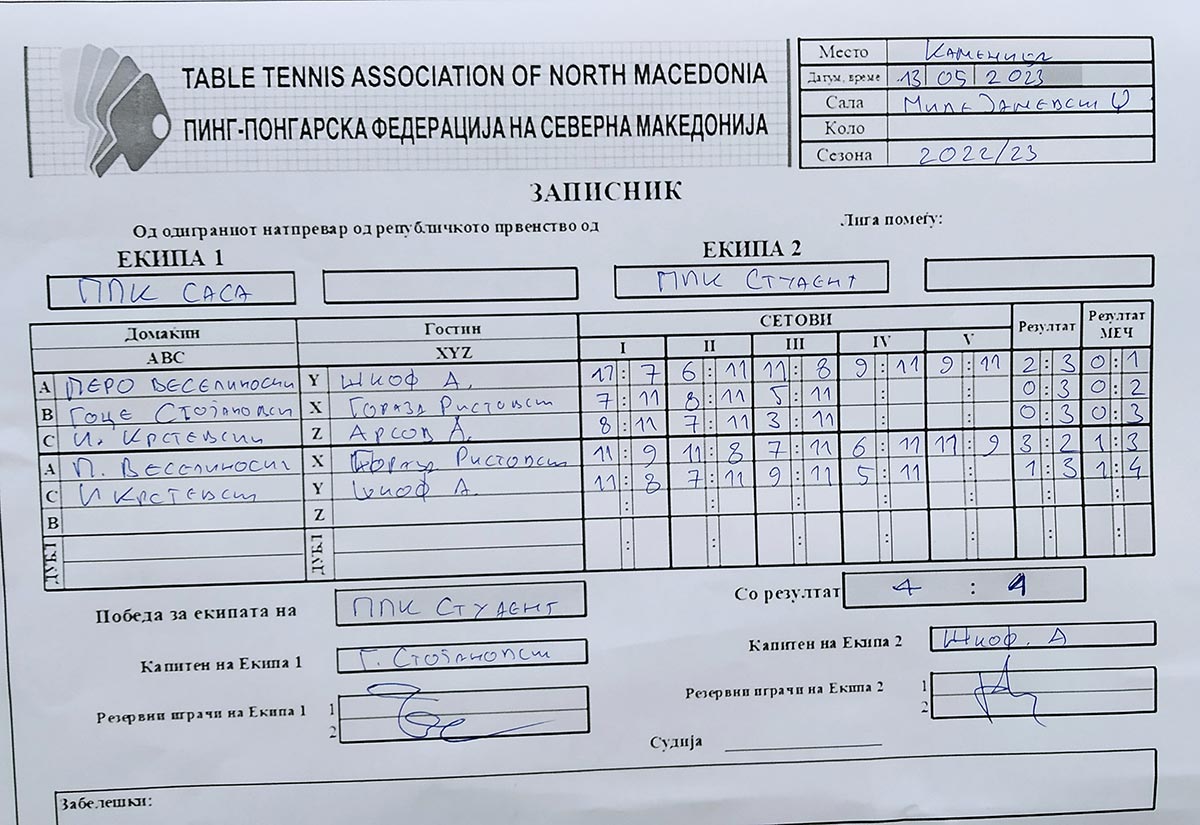 TABLE TENNIS ASSOCIATION OF NORTH MACEDONIA
ПИНГ-ПОНГАРСКА ФЕДЕРАЦИЈА НА СЕВЕРНА МАКЕДОНИЈА
Место Каменица
Датум, време 13 05 2023
Сала Миле
Коло
Сезона 2022/23
ЗАПИСНИК
Од одиграниот натпревар од републичкото првенство од Лига помеѓу:
ЕКИПА 1 ЕКИПА 2
ППК САСА ППК СТУДЕНТ
Домаќин Гостин СЕТОВИ Резултат Резултат МЕЧ
ABC XYZ I II III IV V
A ПЕРО ВЕСЕЛИНОСКИ Y ШКОФ А. : 7 6 : 11 11 : 8 9 : 11 9 : 11 2 : 3 0 : 1
B ГОЦЕ СТОЈАНОВСКИ X РИСТОВСКИ 7 : 11 8 : 11 5 : 11 0 : 3 0 : 2
C И. КРСТЕВСКИ Z АРСОВ А. 8 : 11 7 : 11 3 : 11 0 : 3 0 : 3
A П. ВЕСЕЛИНОСКИ X РИСТОВСКИ 11 : 9 11 : 8 7 : 11 6 : 11 11 : 9 3 : 2 1 : 3
C И КРСТЕВСКИ Y ШКОФ А. 11 : 8 7 : 11 9 : 11 5 : 11 1 : 3 1 : 4
B Z : : : : : : :
ДУБЛ ДУБЛ : : : : : : :
Победа за екипата на ППК СТУДЕНТ Со резултат 4 :
Капитен на Екипа 1 Г. СТОЈАНОВСКИ Капитен на Екипа 2 Шкоф. А
Резервни играчи на Екипа 1 1 2 Резервни играчи на Екипа 2 1 2
Судија
Забелешки: